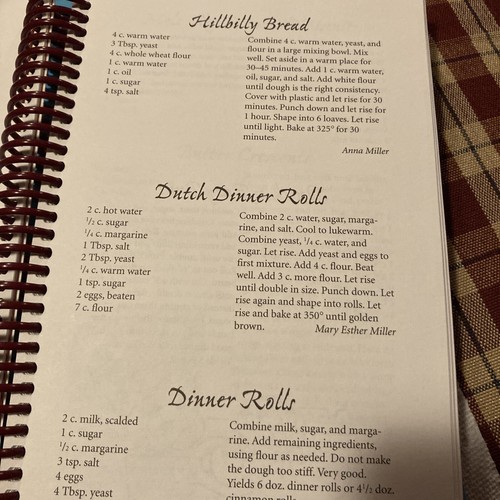 Hillbilly Bread
4 c. warm water
3 Tbsp. yeast
4 c. whole wheat flour
1 c. warm water
1 c. oil
1 c. sugar
4 tsp. salt
Combine 4 c. warm water, yeast, and
flour in a large mixing bowl. Mix
well. Set aside in a warm place for
30–45 minutes. Add 1 c. warm water,
oil, sugar, and salt. Add white flour
until dough is the right consistency.
Cover with plastic and let rise for 30
minutes. Punch down and let rise for
1 hour. Shape into 6 loaves. Let rise
until light. Bake at 325° for 30
minutes.
Anna Miller
Dutch Dinner Rolls
2 c. hot water
1/2 c. sugar
1/4 c. margarine
1 Tbsp. salt
2 Tbsp. yeast
1/4 c. warm water
1 tsp. sugar
2 eggs, beaten
7 c. flour
Combine 2 c. water, sugar, marga-
rine, and salt. Cool to lukewarm.
Combine yeast, 1/4 c. water, and
sugar. Let rise. Add yeast and eggs to
first mixture. Add 4 c. flour. Beat
well. Add 3 c. more flour. Let rise
until double in size. Punch down. Let
rise again and shape into rolls. Let
rise and bake at 350° until golden
brown. Mary Esther Miller
Dinner Rolls
2 c. milk, scalded
1 c. sugar
1/2 c. margarine
3 tsp. salt
4 eggs
4 Tbsp. yeast
Combine milk, sugar, and marga-
rine. Add remaining ingredients,
using flour as needed. Do not make
the dough too stiff. Very good.
Yields 6 doz. dinner rolls or 4 1/2 doz.
cinnamon rolls.